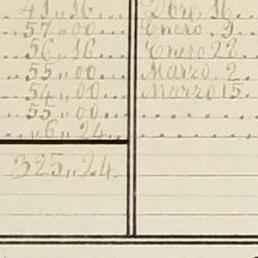 41,,16 Dbre, 16.
57,,00 Enero. 9.
56,,16 Enero 22
55,,00 Marzo. 2.
54,,00 Marzo 15.
55,,00
,,6,,24
325,,24.